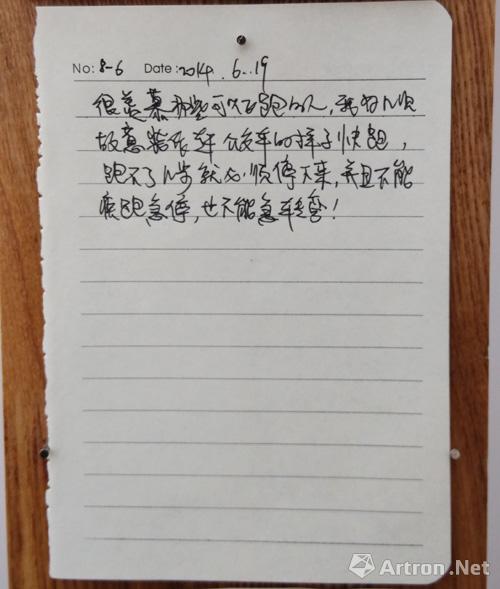 No: 8-6 Date: 2014.6.19
很羡慕那些可以飞跑的人,我有几次
故意装作车的样子快跑,
跑不了几步就必须停下来,并且不能
疾跑急停,也不能急转弯!
Artron.Net